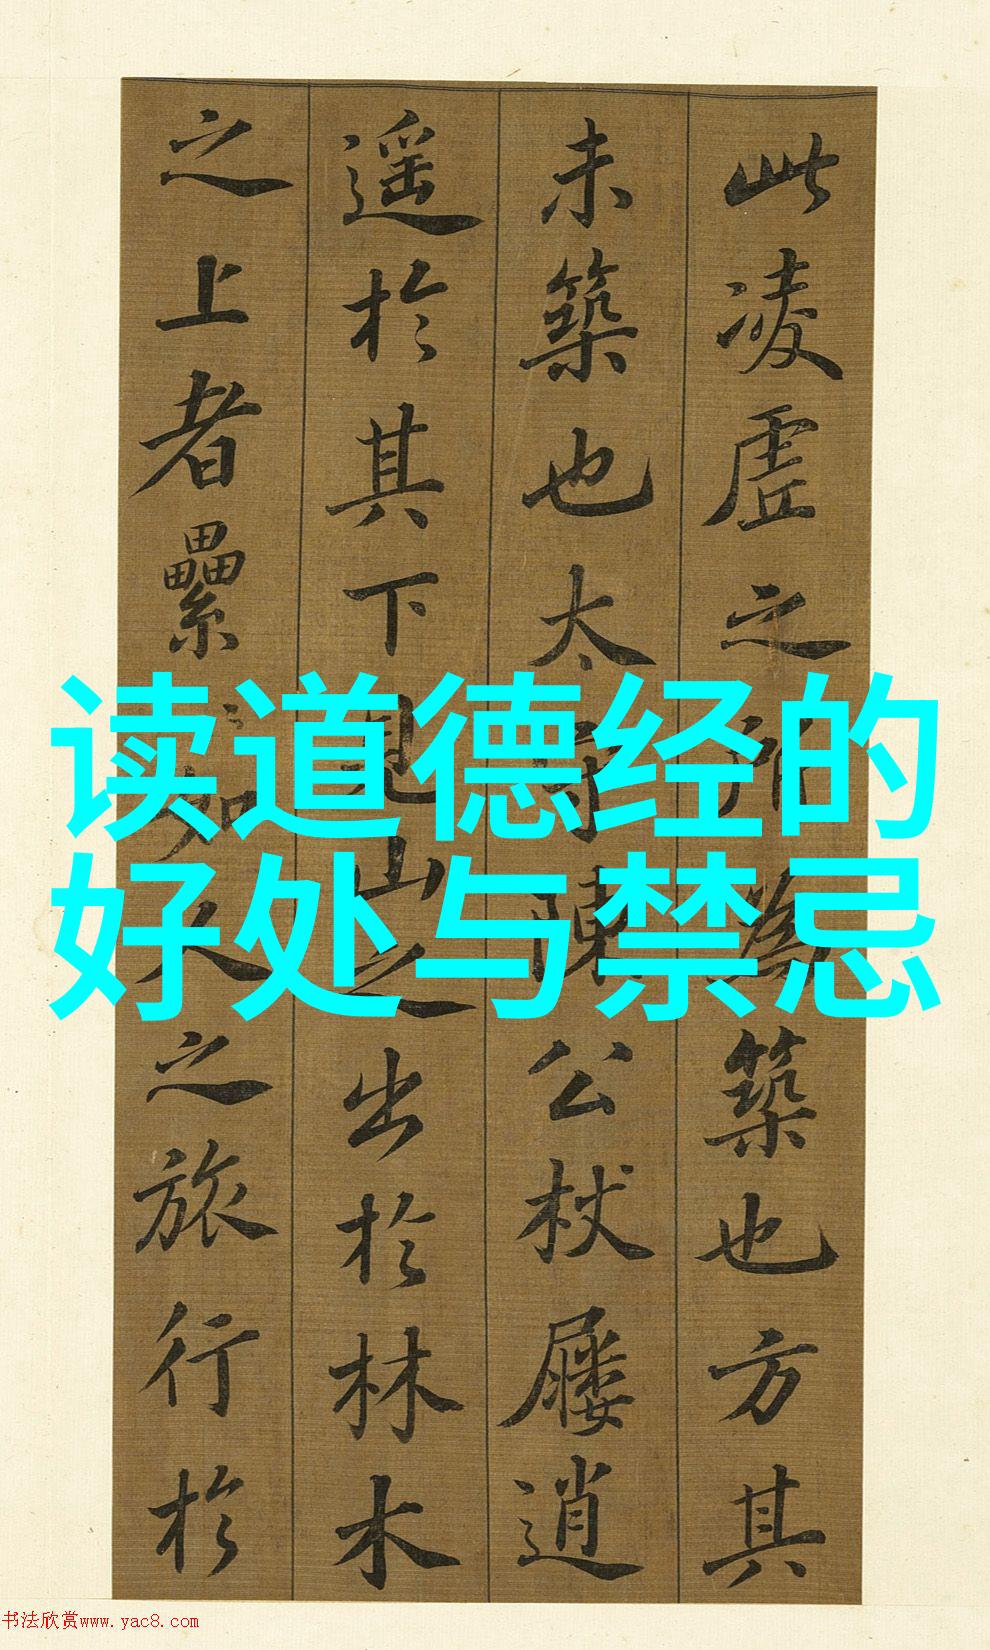 读道德经的
好处与禁忌
此凌虚之所為築也方其
未築也太守陳公杖屨逍
遥於其下見山之出於林木
之上者纍纍如人之旅行於
书法欣赏www.yac8.com